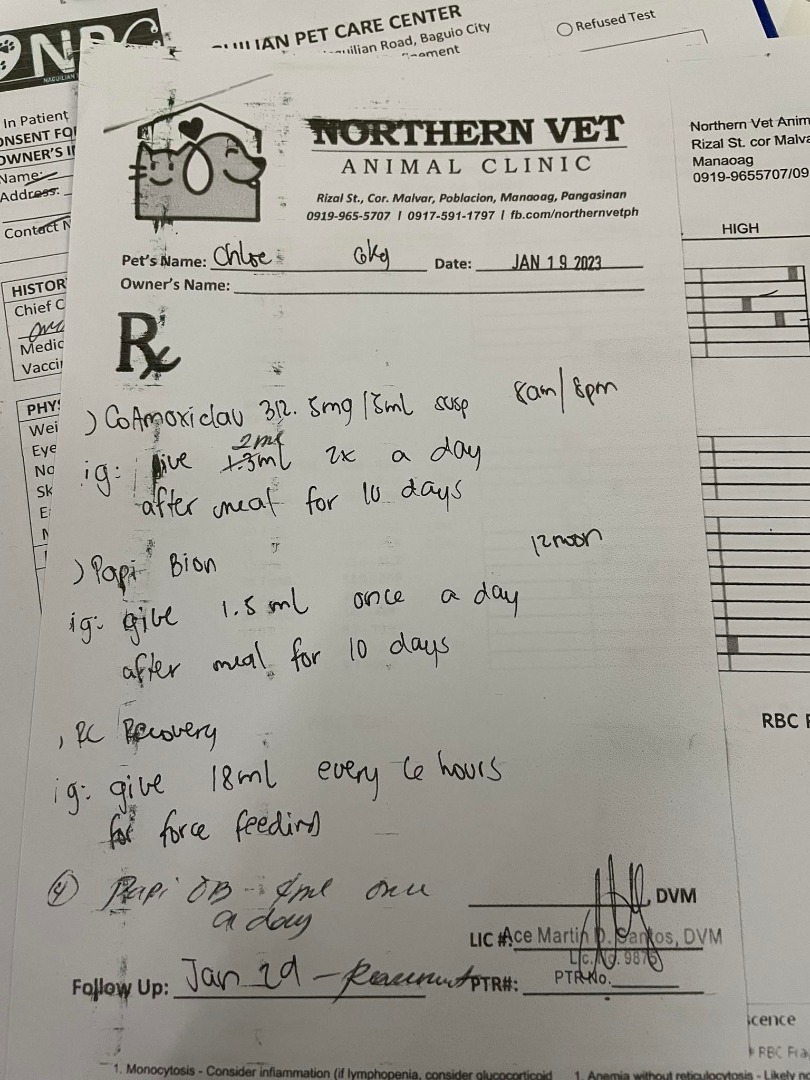 PET CARE CENTER
Road, Baguio City
Refused Test
In Patient
Name:
Address:
Contact
HISTOR
Chief C
Medic
Vacci
PHY
Wei
Eye
No
Sk
NORTHERN VET
ANIMAL CLINIC
Rizal St., Cor. Malvar, Poblacion, Manaoag, Pangasinan
0919-965-5707 | 0917-591-1797 | fb.com/northernvetph
Pet's Name: Chloe 6kg Date: JAN 19 2023
Owner's Name:
Rx
) CoAmoxiclav 312.5mg/5ml susp 8am/8pm
2ml
ig: give 1.3ml 2x a day
after meal for 10 days
) Papi Bion 12noon
ig: give 1.5 ml once a day
after meal for 10 days
, RC Recovery
ig: give 18ml every 6 hours
for force feeding
④ Papi OB - 4ml once
a day
DVM
LIC #: Ace Martin D. Santos, DVM
Lic. No. 9876
Follow Up: Jan 29 - PTR#: PTR No.
Northern Vet Anim
Rizal St. cor Malva
Manaoag
0919-9655707/09
HIGH
RBC F
scence
RBC Fra
1. Monocytosis - Consider inflammation (if lymphopenia, consider glucocorticoid
1. Anemia without reticulocytosis - Likely no